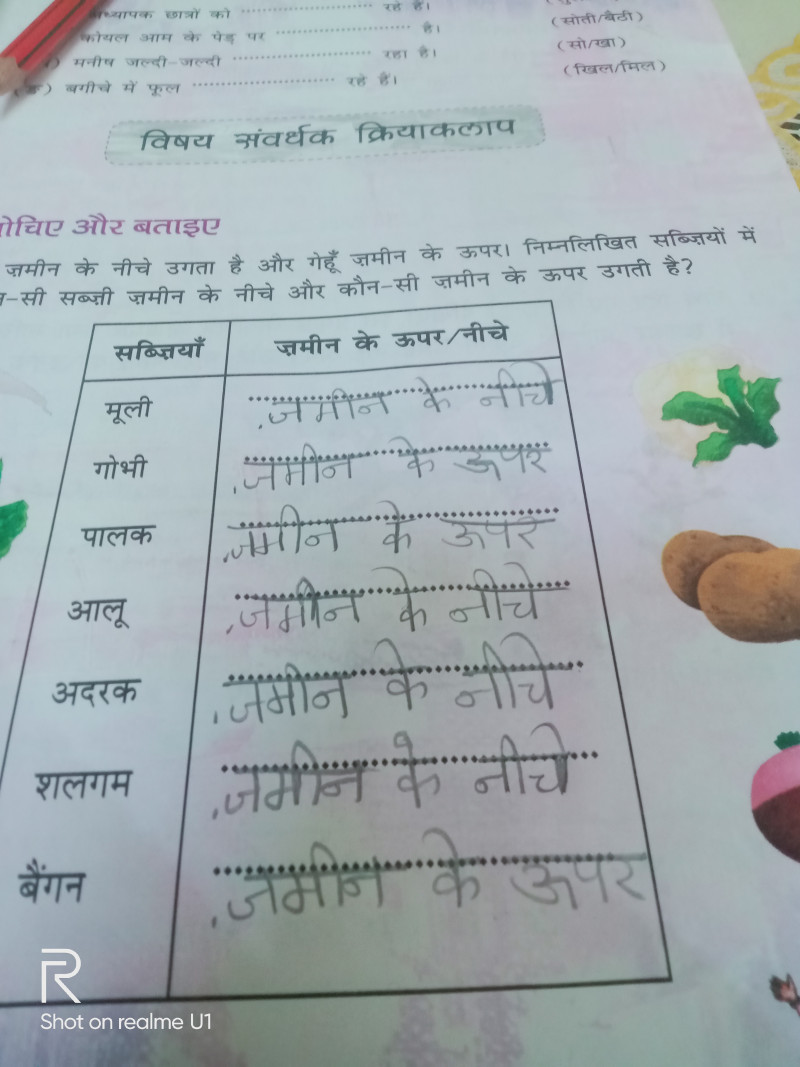 अध्यापक छात्रों को .................... रहे हैं।
(सोती/बैठी)
कोयल आम के पेड़ पर .................... है।
(सो/खा)
मनीष जल्दी-जल्दी .................... रहा है।
(खिल/मिल)
(ङ) बगीचे में फूल .................... रहे हैं।
विषय संवर्धक क्रियाकलाप
सोचिए और बताइए
ज़मीन के नीचे उगता है और गेहूँ ज़मीन के ऊपर। निम्नलिखित सब्ज़ियों में
न-सी सब्ज़ी ज़मीन के नीचे और कौन-सी ज़मीन के ऊपर उगती है?
सब्ज़ियाँ ज़मीन के ऊपर/नीचे
मूली जमीन के नीचे
गोभी जमीन के ऊपर
पालक जमीन के ऊपर
आलू जमीन के नीचे
अदरक जमीन के नीचे
शलगम जमीन के नीचे
बैंगन जमीन के ऊपर
R
Shot on realme U1